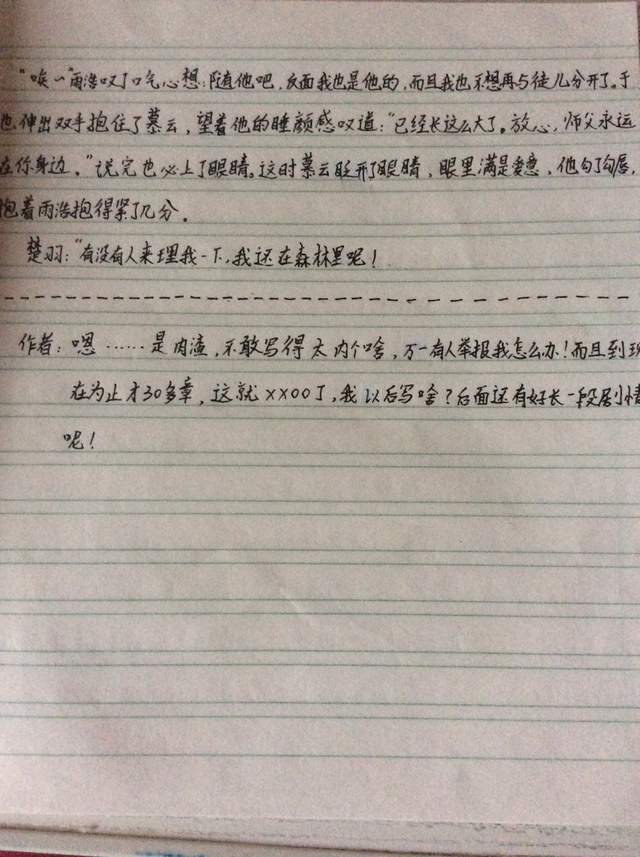 “唉~”雨浩叹了口气心想:随他吧,反面我也是他的,而且我也不想再与徒儿分开了。于
也伸出双手抱住了慕云,望着他的睡颜感叹道:“已经长这么大了。放心,师父永远
在你身边。”说完也必上了眼睛。这时慕云眨开了眼睛,眼里满是爱意,他勾了勾唇,
抱着雨浩抱得紧了几分。
楚羽:“有没有人来理我一下,我还在森林里呢!
作者:嗯……是肉渣,不敢写得太内个啥,万一有人举报我怎么办!而且到现
在为止才30多章,这就××OO了,我以后写啥?后面还有好长一段剧情
呢!